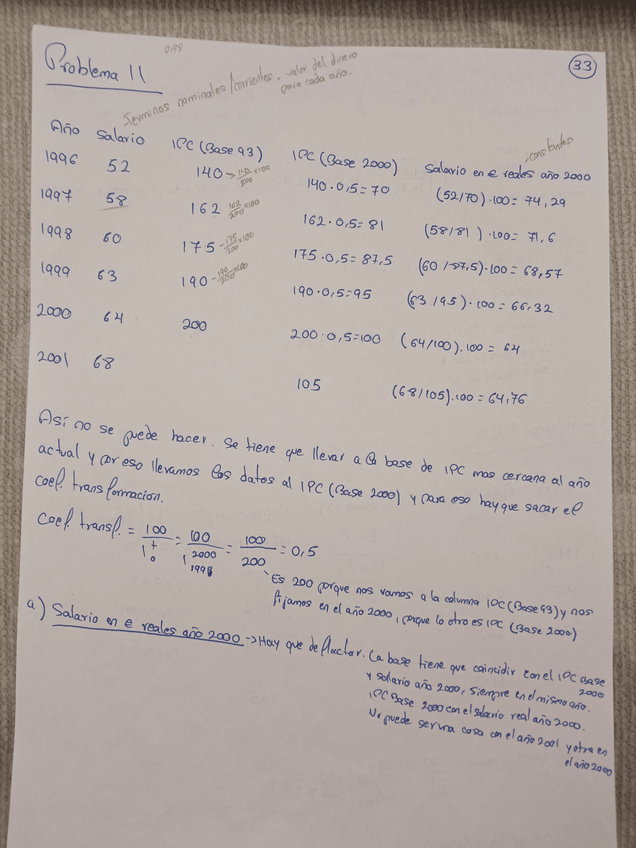 Problema 11
0,98
33
Términos nominales/corrientes. valor del dinero
para cada año.
Año Salario IPC (Base 93) IPC (Base 2000) Salario en € reales año 2000
constantes
1996 52 140 → 140/200 x100 140 · 0,5 = 70 (52/70) · 100 = 74,29
1997 58 162 162/200 x100 162 · 0,5 = 81 (58/81) · 100 = 71,6
1998 60 175 - 175/200 x100 175 · 0,5 = 87,5 (60/87,5) · 100 = 68,57
1999 63 190 - 190/200 x100 190 · 0,5 = 95 (63/95) · 100 = 66,32
2000 64 200 200 · 0,5 = 100 (64/100) · 100 = 64
2001 68 105 (68/105) · 100 = 64,76
Así no se puede hacer. Se tiene que llevar a la base de IPC mas cercana al año
actual y por eso llevamos los datos al IPC (Base 2000) y para eso hay que sacar el
coef. transformacion.
Coef. transf. = 100/I t 0 = 100/I 2000 = 100/200 = 0,5
Es 200 porque nos vamos a la columna IPC (Base 93) y nos
fijamos en el año 2000, porque lo otro es IPC (Base 2000)
a) Salario en € reales año 2000 -> Hay que deflactar. La base tiene que coincidir con el IPC Base
2000
y salario año 2000, siempre en el mismo año.
IPC Base 2000 con el salario real año 2000.
No puede ser una cosa con el año 2001 y otra en
el año 2000